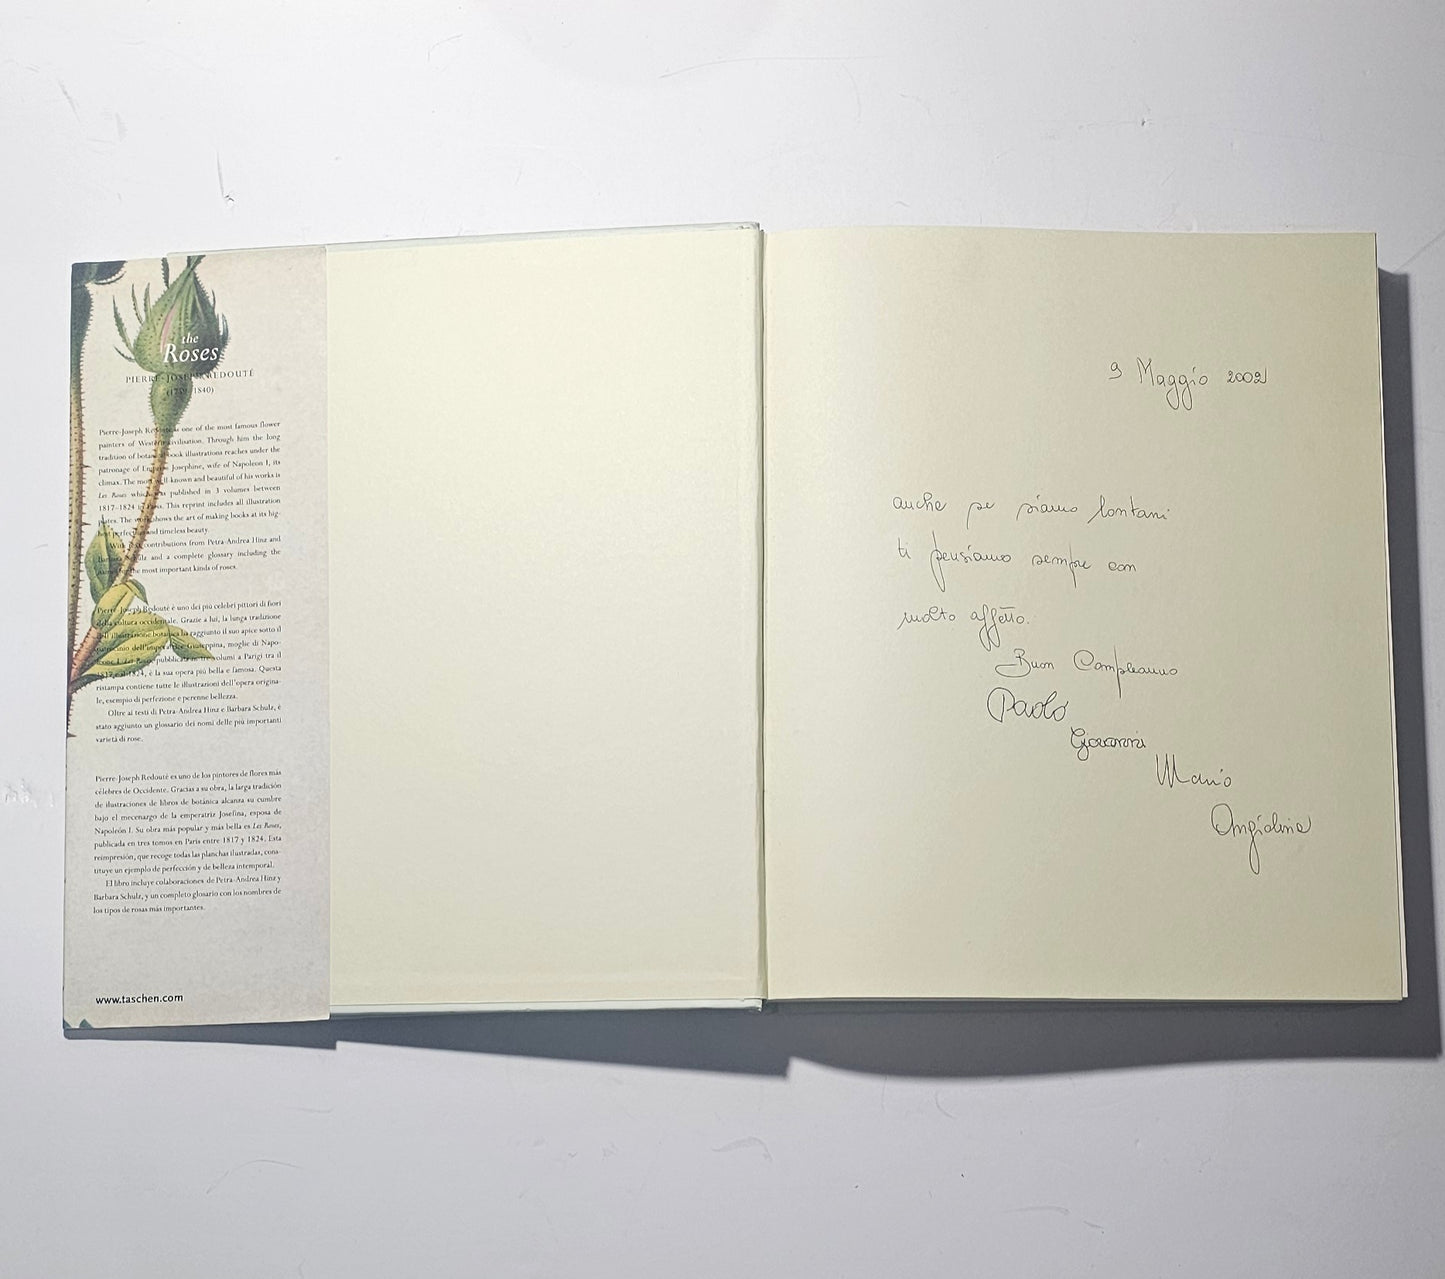 the
Roses
PIERRE-JOSEPH REDOUTÉ
(1759–1840)
Pierre-Joseph Redouté is one of the most famous flower
painters of Western civilisation. Through him the long
tradition of botanical book illustrations reaches under the
patronage of Empress Josephine, wife of Napoleon I, its
climax. The most well known and beautiful of his works is
Les Roses which was published in 3 volumes between
1817–1824 in Paris. This reprint includes all illustration
plates. The work shows the art of making books at its hig-
hest perfection and timeless beauty.
With text contributions from Petra-Andrea Hinz and
Barbara Schulz and a complete glossary including the
names of the most important kinds of roses.
Pierre-Joseph Redouté è uno dei più celebri pittori di fiori
della cultura occidentale. Grazie a lui, la lunga tradizione
dell'illustrazione botanica ha raggiunto il suo apice sotto il
patrocinio dell'imperatrice Giuseppina, moglie di Napo-
leone I. Les Roses, pubblicata in tre volumi a Parigi tra il
1817 e il 1824, è la sua opera più bella e famosa. Questa
ristampa contiene tutte le illustrazioni dell'opera origina-
le, esempio di perfezione e perenne bellezza.
Oltre ai testi di Petra-Andrea Hinz e Barbara Schulz, è
stato aggiunto un glossario dei nomi delle più importanti
varietà di rose.
Pierre-Joseph Redouté es uno de los pintores de flores más
célebres de Occidente. Gracias a su obra, la larga tradición
de ilustraciones de libros de botánica alcanza su cumbre
bajo el mecenazgo de la emperatriz Josefina, esposa de
Napoleón I. Su obra más popular y más bella es Les Roses,
publicada en tres tomos en París entre 1817 y 1824. Esta
reimpresión, que recoge todas las planchas ilustradas, cons-
tituye un ejemplo de perfección y de belleza intemporal.
El libro incluye colaboraciones de Petra-Andrea Hinz y
Barbara Schulz, y un completo glosario con los nombres de
los tipos de rosas más importantes.
www.taschen.com
9 Maggio 2002
anche se siamo lontani
ti pensiamo sempre con
molto affetto.
Buon Compleanno
Paolo
Giovanni
Mario
Angiolina